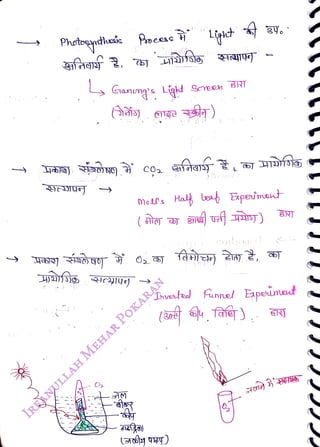 → Photosynthesis Process में Light की उप०
अनिवार्य है, का प्रायोगिक सत्यापन -
↳ Ganung's Light Screen द्वारा
(गेनोंग लाइट स्क्रीन)
→ प्रकाश संश्लेषण में CO₂ अनिवार्य है, का प्रायोगिक
सत्यापन →
Moll's Half leaf Experiment
(मोल का आधी पत्ती प्रयोग) द्वारा
→ प्रकाश संश्लेषण में O₂ का विमोचन होता है, का
प्रायोगिक सत्यापन →
Inverted Funnel Experiment
(उल्टी कीप विधि) द्वारा
IRFANULLAH MEHAR POKARAN
O₂
जल
बीकर
कीप
हाइड्रिला
(जलीय पादप)
O₂
जलने में सहायक